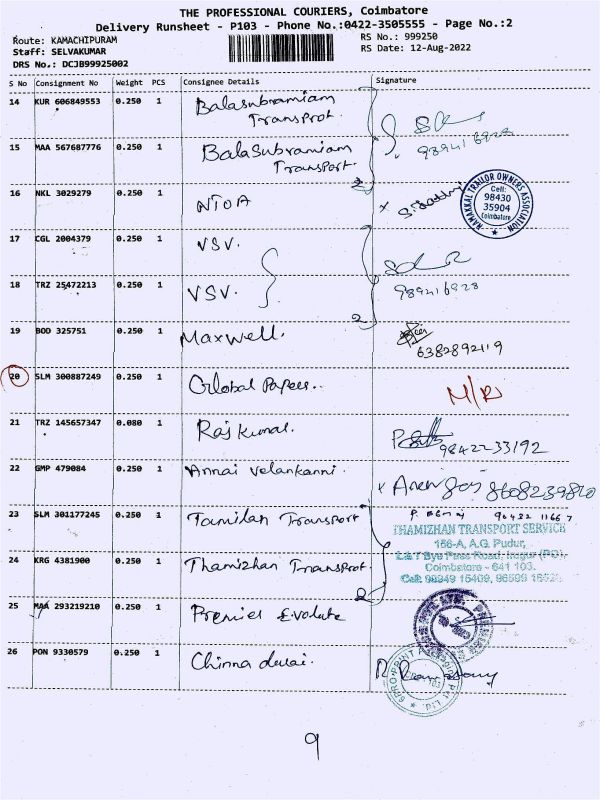 THE PROFESSIONAL COURIERS, Coimbatore
Delivery Runsheet - P103 - Phone No.:0422-3505555 - Page No.:2
Route: KAMACHIPURAM
RS No.: 999250
Staff: SELVAKUMAR
RS Date: 12-Aug-2022
DRS No.: DCJB99925002
S No Consignment No Weight PCS Consignee Details Signature
14 KUR 606849553 0.250 1 Balasubramiam
Transprot.
15 MAA 567687776 0.250 1 Balasubramiam
Transport.
2
16 NKL 3029279 0.250 1 NTOA
NAMAKKAL TRAILOR OWNERS ASSOCIATION
Cell:
98430
35904
Coimbatore
17 CGL 2004379 0.250 1 VSV.
18 TRZ 25472213 0.250 1 VSV.
989416928
2
19 BOD 325751 0.250 1 Maxwell.
6382892119
20 SLM 300887249 0.250 1 Global Papers..
M/R
21 TRZ 145657347 0.080 1 Rajkumar.
9842233192
22 GMP 479084 0.250 1 Annai Velankanni.
8608239820
23 SLM 301177245 0.250 1 Tamilan Transport
THAMIZHAN TRANSPORT SERVICE
156-A, A.G. Pudur,
L&T Bye Pass Road, Irugur (PO),
Coimbatore - 641 103.
Cell: 98949 15409,
24 KRG 4381900 0.250 1 Thamizhan Transport.
2
25 MAA 293219210 0.250 1 Premier Evolute
26 PON 9330579 0.250 1 Chinna durai.
9